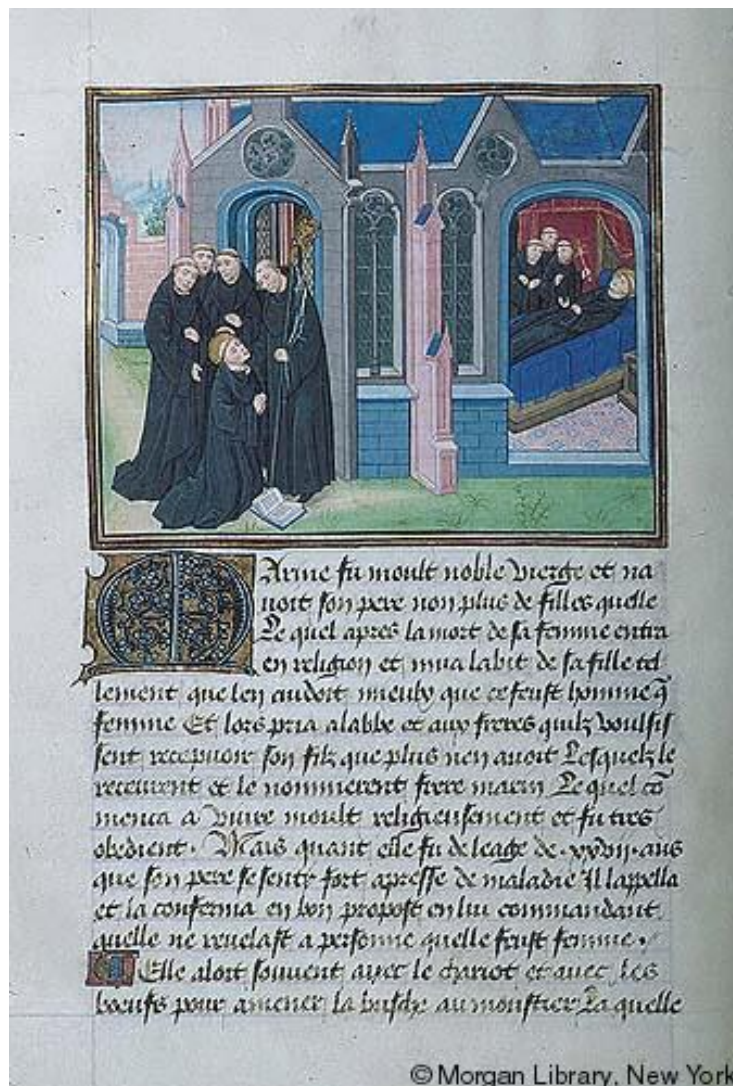 Marine fu moult noble vierge et na
voit son pere non plus de filles quelle
Le quel apres la mort de sa femme entra
en religion et mua labit de sa fille tel
lement que len cudoit mieulx que ce feust homme q̄
femme Et lors pria alabbe et aux freres quilz voulsis
sent recepuoir son filz que plus nen auoit Lesquelz le
receurent et le nommerent frere marin Le quel cō
menca a viure moult religieusement et fu tres
obedient. Mais quant elle fu de leage de .xxvii. ans
que son pere se senti fort apresse de maladie Il lappella
et la conferma en bon propost en lui commandant
quelle ne reuelast a personne quelle feust femme.
Elle aloit souuent auec le chariot et auec les
boeufs pour amener la busche au moustier La quelle
© Morgan Library, New York